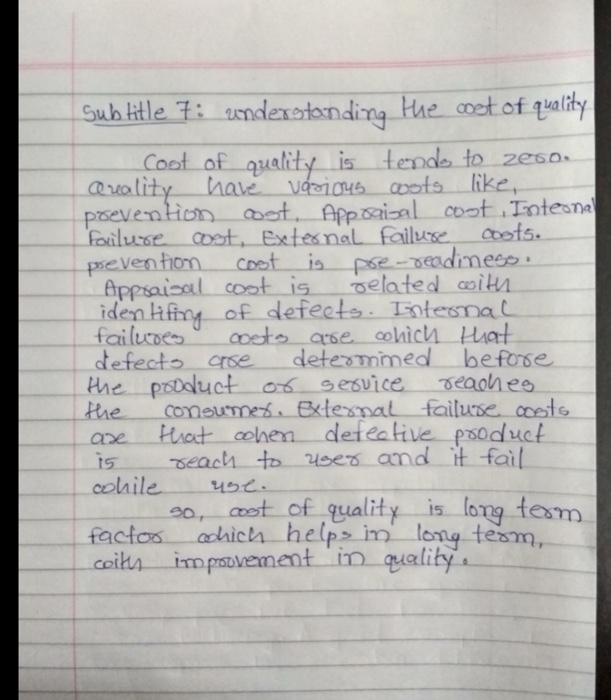 Subtitle 7: understanding the cost of quality
Cost of quality is tends to zero.
Quality have various costs like,
prevention cost, Appraisal cost, Internal
Failure cost, External Failure costs.
prevention cost is pre-readiness.
Appraisal cost is related with
identifing of defects. Internal
failures costs are which that
defects are determined before
the product or service reaches
the consumer. External failure costs
are that when defective product
is reach to user and it fail
while use.
so, cost of quality is long term
factor which helps in long term,
with improvement in quality.